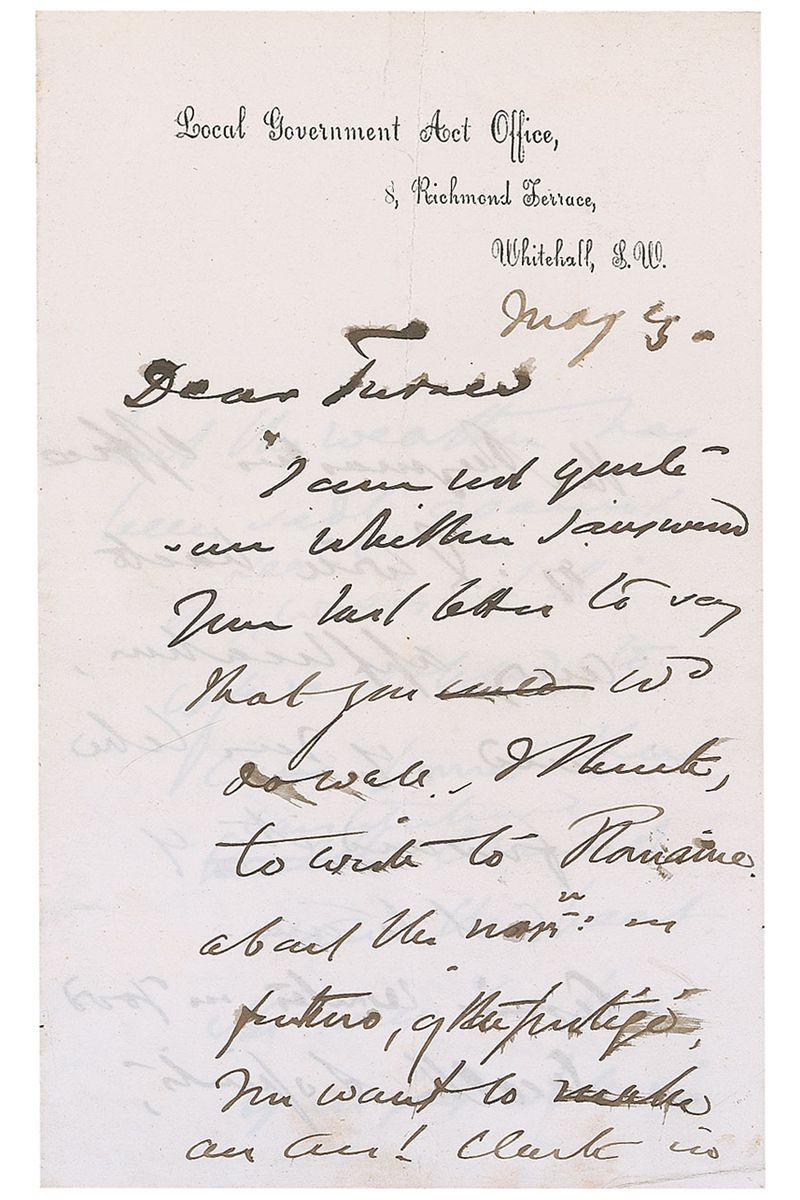 Local Government Act Office,
8, Richmond Terrace,
Whitehall, S.W.
May 5.
Dear Turner
I am not quite
sure whether I answered
Your last letter to say
that you would wd
do well, I think,
to write to Romaine
about the nomn: in
futuro, of the protégé,
You want to make
an Asst Clerk in